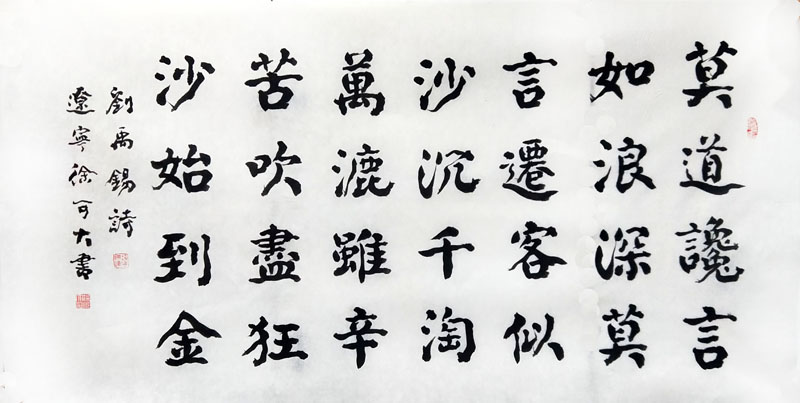 莫道讒言
如浪深莫
言遷客似
沙沉千淘
萬漉雖辛
苦吹盡狂
沙始到金
劉禹錫詩
遼寧徐可大書